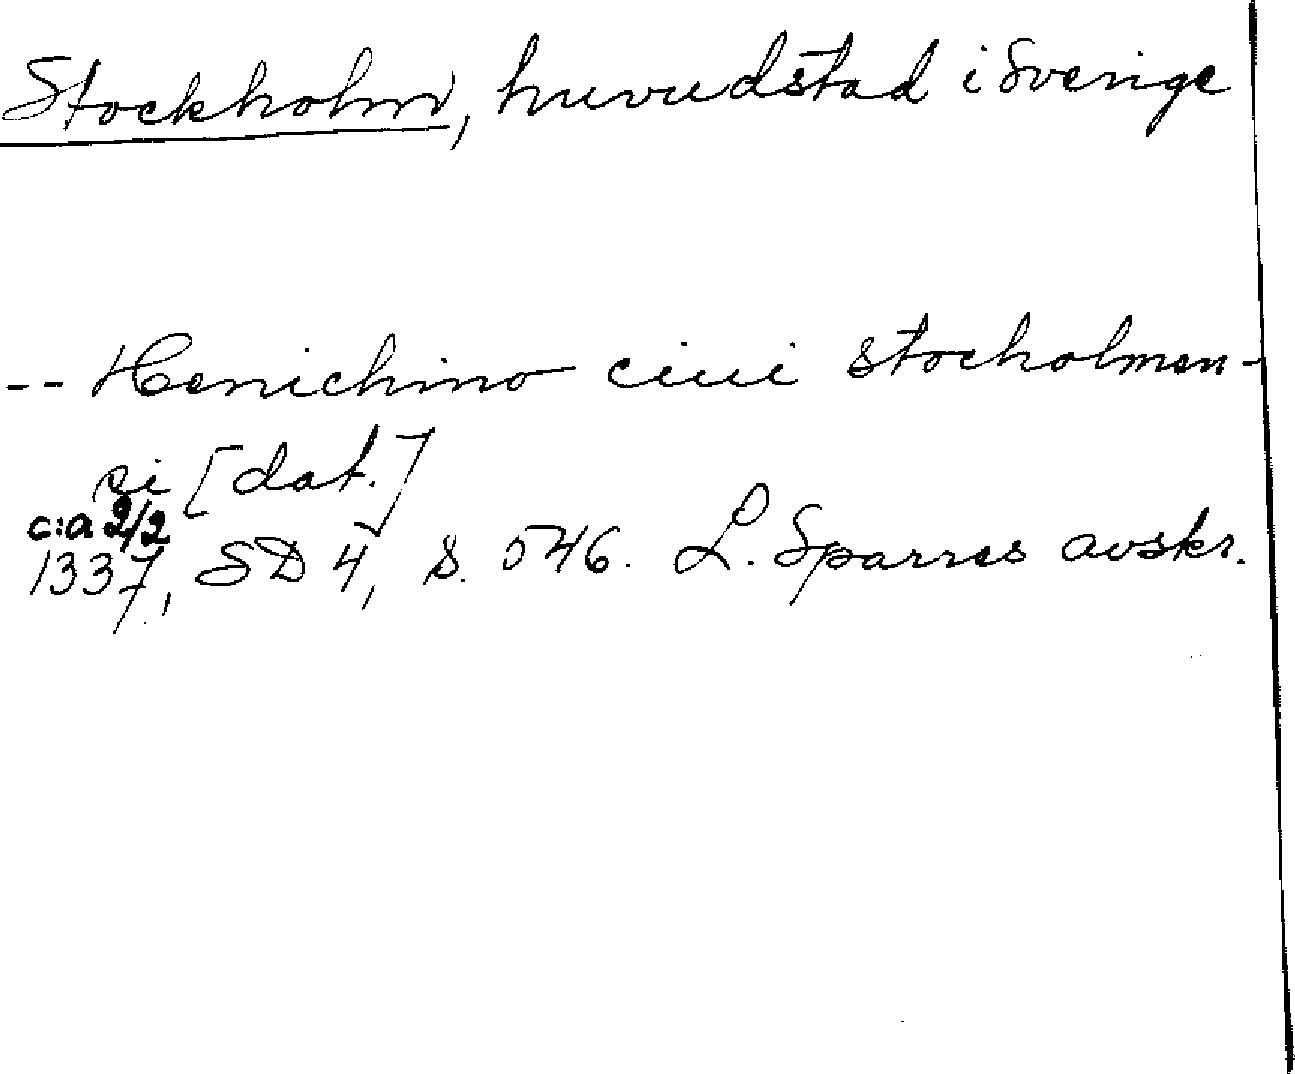 Stockholm, huvudstad i Sverige
-- Henichino ciui stocholmen-
si [dat.]
c:a 2/2
1337, SD 4, s. 546. L. Sparres avskr.